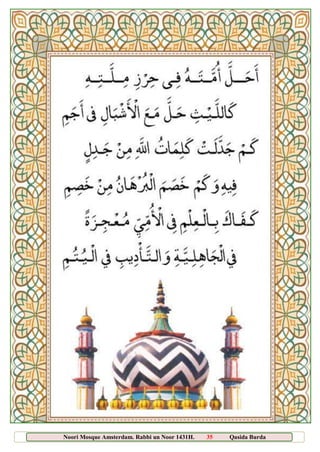 أَحَـلَّ أُمَّـتَـهُ فِـي حِرْزِ مِـلَّـتِـهِ
كَاللَّـيْـثِ حَـلَّ مَعَ الْأَشْبَالِ فِي أَجَمِ
كَـمْ جَدَّلَـتْ كَلِمَاتُ اللهِ مِنْ جَـدِلٍ
فِيهِ وَكَمْ خَصَمَ الْبُرْهَانُ مِنْ خَصِمِ
كَـفَـاكَ بِـالْـعِلْمِ فِي الْأُمِّيِّ مُـعْـجِـزَةً
فِي الْجَاهِلِـيَّـةِ وَالـتَّـأْدِيبِ فِي الْـيُـتُـمِ
Noori Mosque Amsterdam. Rabbi un Noor 1431H. 35 Qasida Burda